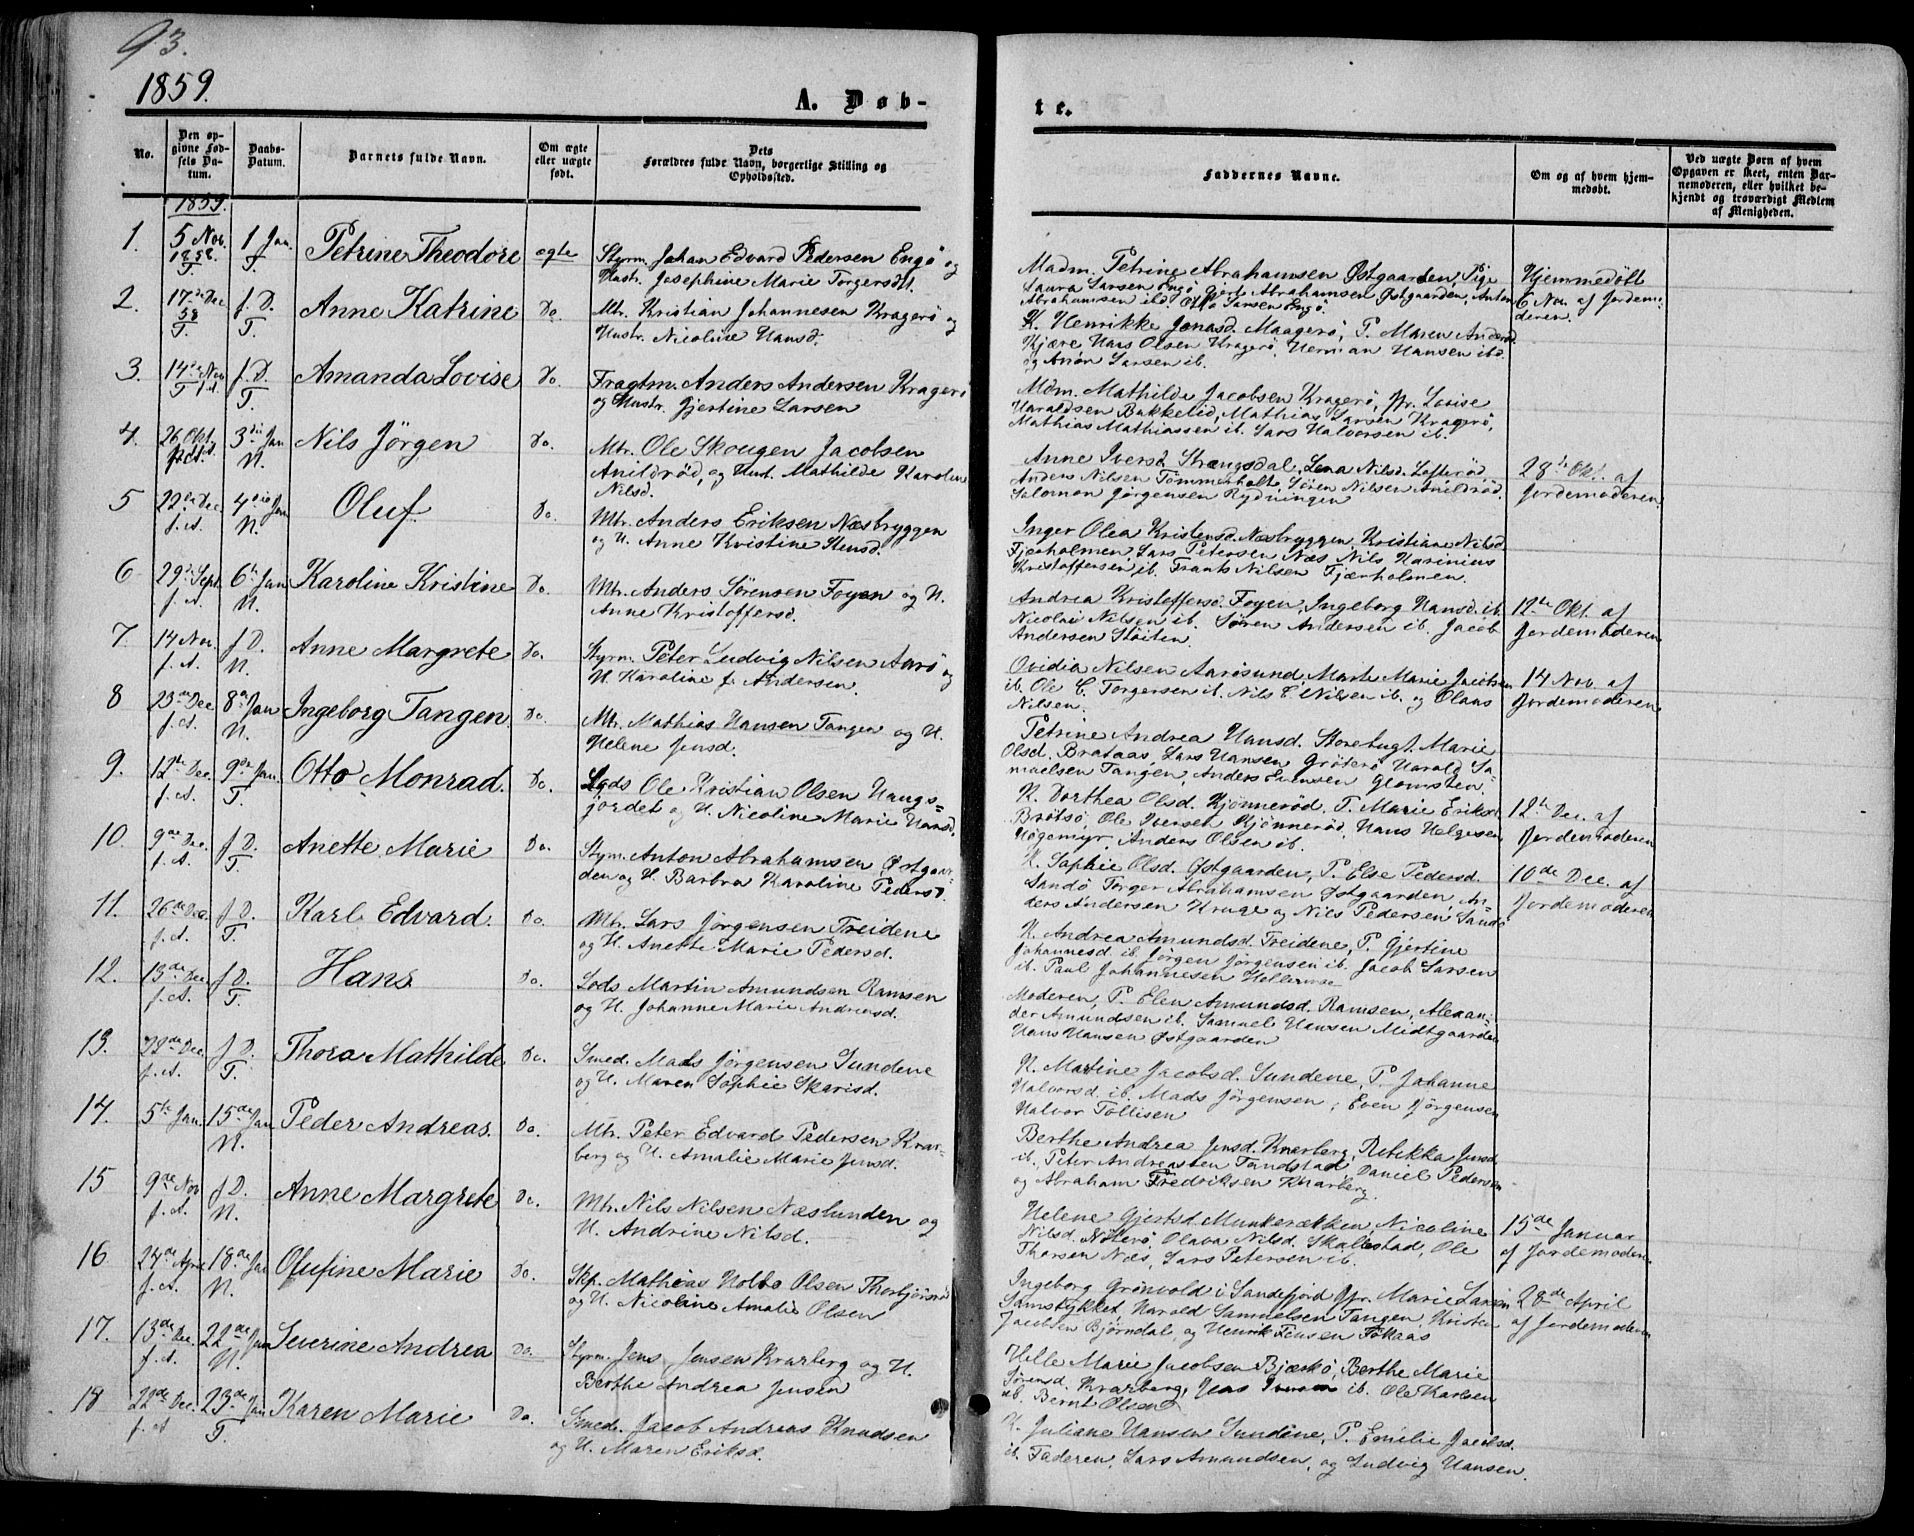 93.
1859.
A. Døb-
te.
No.
Den op-
givne Fød-
sels Da-
tum.
Daabs-
Datum.
Barnets fulde Navn.
Om ægte
eller uægte
født.
Dets
Forældres fulde Navn, borgerlige Stilling og
Opholdssted.
Faddernes Navne.
Om og af hvem hjem-
medøbt.
Ved uægte Børn af hvem
Opgaven er skeet, enten Bar-
nemoderen, eller hvilket be-
kjendt og troværdigt Medlem
af Menigheden.
1859.
1. 5 Nov. 1858. T. 1 Jan. T. Petrine Theodore ægte Styrm. Johan Edvard Pedersen Engø og
Hustr. Josephine Marie Torgersdtt.
Madm. Petrine Abrahamsen Østgaarden, Pige
Laura Larsen Engø, Gjert Abrahamsen Østgaarden, Anton
Abrahamsen ibd. Otto Larsen Engø.
Hjemmedøbt
6 Nov. af Jordemo-
deren.
2. 17de Dec 58 T. f. D. T. Anne Katrine Do. Mtr. Kristian Johannesen Kragerø og
Hustr. Nicoline Hansd.
K. Henrikke Jonasd. Maagerø, P. Maren Andersd
Kjære Hans Olsen Kragerø, Herman Hansen ibd.
og Anøn Larsen ib.
3. 14de Nov f. A. T. f. D. T. Amanda Lovise Do. Fragtm. Anders Andersen Kragerø
og Hustr. Gjertine Larsen
Mdm. Mathilde Jacobsen Kragerø, Jfr. Louise
Haraldsen Bakkelid, Mathias Larsen Kragerø,
Mathias Mathiassen ib. Lars Halvorsen ib.
4. 26 Okt. 3die Jan N. Nils Jörgen Do. Mtr. Ole Skougen Jacobsen
Anildrød, og Hust. Mathilde Karoline
Nilsd.
Anne Iversd. Strængsdal, Lena Nilsd. Lofterød,
Anders Nilsen Tömmerholt, Søren Nilsen Anildrød,
Salomon Jørgensen Rydningen
28de Okt. af
Jordemoderen
5 22de Dec f. A. 4die Jan N. Oluf Do. Mtr. Anders Eriksen Næsbryggen
og H. Anne Kristine Stensd.
Inger Olea Kristensd. Næsbryggen, Kristiane Nilsd
Fjærholmen, Lars Petersen Næs Nils Karinius
Kristoffersen ib. Frants Nilsen Fjærholmen.
6 29de Sept f. A. 6te Jan N. Karoline Kristine Do. Mtr. Anders Sørensen Foyen og H.
Anne Kristoffersd.
Andrea Kristoffersd. Foyen, Ingeborg Hansd. ib.
Nicolai Nilsen ib. Søren Andersen ib. Jacob
Andersen Støiten
12te Okt. af
Jordemoderen
7. 14 Nov. f. A. f. D. N. Anne Margrete Do. Styrm. Peter Ludvig Nilsen Aarø og
H. Karoline f. Andersen.
Ovidia Nilsen Aarøsund, Marte Marie Jacobsen
ib. Ole C. Torgersen ib. Nils C. Nilsen ib. og Olaus
Nilsen.
14 Nov. af
Jordemoderen
8 23de Dec f. A. 8de Jan N. Ingeborg Tangen. Do. Mtr. Mathias Hansen Tangen og H.
Helene Jensd.
Petrine Andrea Hansd. Storebugt. Marie
Olsd. Brataas, Lars Hansen Grøterø Harald Sa-
muelsen Tangen, Anders Evensen Glomsten.
9. 12te Dec. f. A. 9de Jan. T. Otto Monrad. Do. Lods Ole Kristian Olsen Haugs-
jordet og H. Nicoline Marie Hansd.
K. Dorthea Olsd. Kjønnerød, P. Marie Eriksd
Brøtsø, Ole Iversen Kjønnerød, Hans Helgesen
Høgemyr, Anders Olsen ib.
12te Dec. af
Jordemoderen
10. 9de Dec. f. A. f. D. T. Anette Marie Do. Styrm. Anton Abrahamsen Østgaar-
den og H. Barbra Karoline Pedersd.
K. Sophie Olsd. Østgaarden, P. Else Pedersd.
Sandø Torger Abrahamsen Østgaarden, An-
ders Andersen Kruge og Nils Pedersen Sandø
10de Dec. af
Jordemoderen
11. 26de Dec. f. A. f. D. T. Karl Edvard. Do. Mtr. Lars Jørgensen Treidene
og H. Anette Marie Pedersd.
K. Andrea Amundsd. Treidene, P. Gjertine
Johannesd. ib. Jørgen Jørgensen ib. Jacob Larsen
ib. Paul Johannesen Hellemoe
12. 13de Dec. f. A. f. D. T. Hans Do. Lods Martin Amundsen Ramsen
og H. Johanne Marie Andreasd.
Moderen, P. Elen Amundsd. Ramsen, Alexan-
der Amundsen ib. Samuel Hansen Midtgaarden
Hans Hansen Østgaarden
13. 29de Dec. f. A. f. D. T. Thora Mathilde Do. Smed. Mads Jørgensen Sundene
og H. Maren Sophie Skarisd.
K. Martine Jacobsd. Sundene, P. Johanne
Halvorsd. ib. Mads Jørgensen, Even Jörgensen
Halvor Tollisen
14. 5te Jan. 15de Jan N. Peder Andreas. Do. Mtr. Peter Edvard Pedersen Knar-
berg og H. Amalie Marie Jensd.
Berthe Andrea Jensd. Knarberg, Rebikka Jensd
ib. Peter Andreassen Tandstad Daniel Pedersen
og Abraham Fredriksen Knarberg.
15 9de Nov f. A. f. D. N. Anne Margrete Do. Mtr. Nils Nilsen Næslunden og
H. Andrine Nilsd.
Helene Gjertsd. Munkerækken, Nicoline
Nilsd. Nøterø Olava Nilsd. Skallestad, Ole
Thorsen Næs, Lars Petersen ib.
15de Januar
af Jordemoderen
16 24de April f. A. 18de Jan N. Olufine Marie Do. Skp. Mathias Holbo Olsen Thorbjörnrød
og H. Nicoline Amalie Olsen
Ingeborg Grönvold i Sandefjord Jfr. Marie Larsen
Samstykket, Harald Samuelsen Tangen, Kristen
Jacobsen Bjørndal, og Henrik Jensen Fokaas
28de April
af Jordemoderen
17. 13de Dec. f. A. 22de Jan N. Severine Andrea Do. Styrm. Jens Jensen Knarberg og H.
Berthe Andrea Jensen
Helle Marie Jacobsen Bjerkø, Berthe Marie
Sørensd. Knarberg, Jens ib. Ole Karlsen
ib. Bernt Olsen
18 22de Dec. f. A 23de Jan T. Karen Marie Do. Smed. Jacob Andreas Knudsen
og H. Maren Eriksd.
K. Juliane Hansen Sundene, P. Emilie Jacobsd.
ib. Faderen, Lars Amundsen, og Ludvig Hansen.